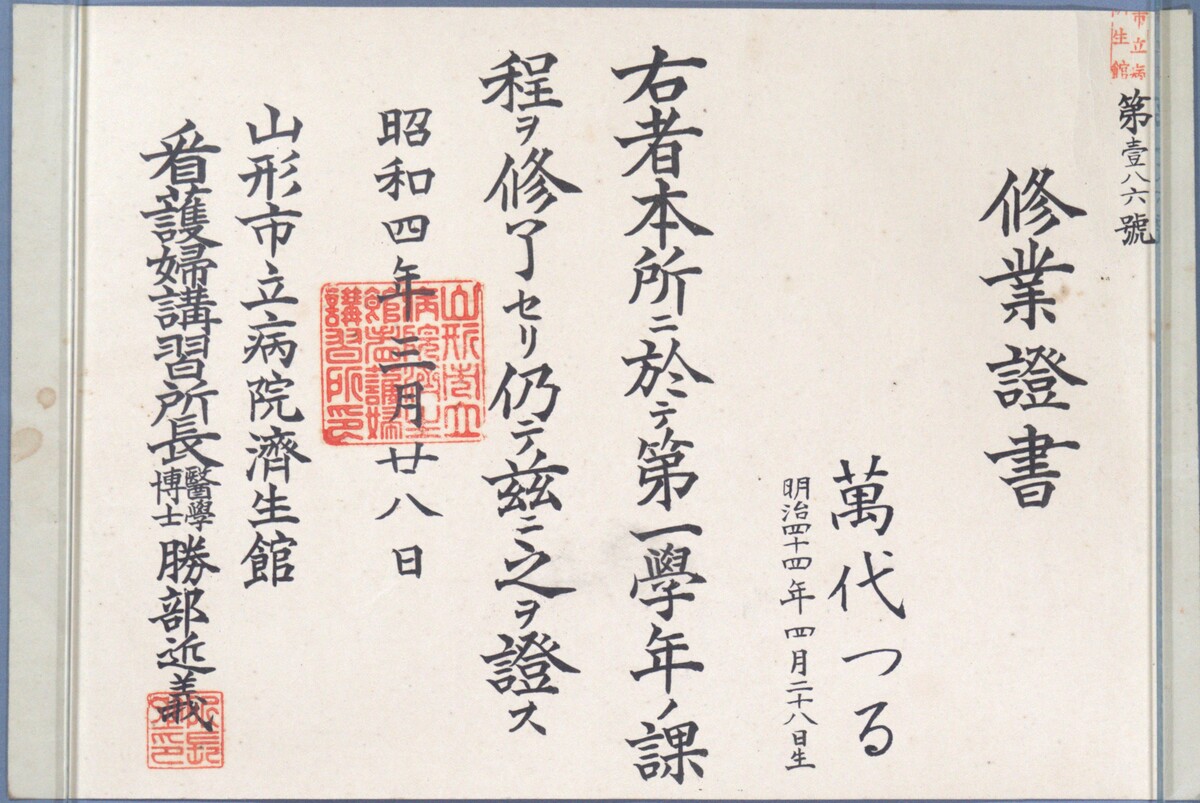 第壹八六號
修業證書
萬代つる
明治四十四年四月二十八日生
右者本所ニ於テ第一學年ノ課
程ヲ修了セリ仍テ玆ニ之ヲ證ス
昭和四年三月廿八日
山形市立病院濟生館
看護婦講習所長醫學博士勝部近義
山形市立病院濟生館看護婦講習所印